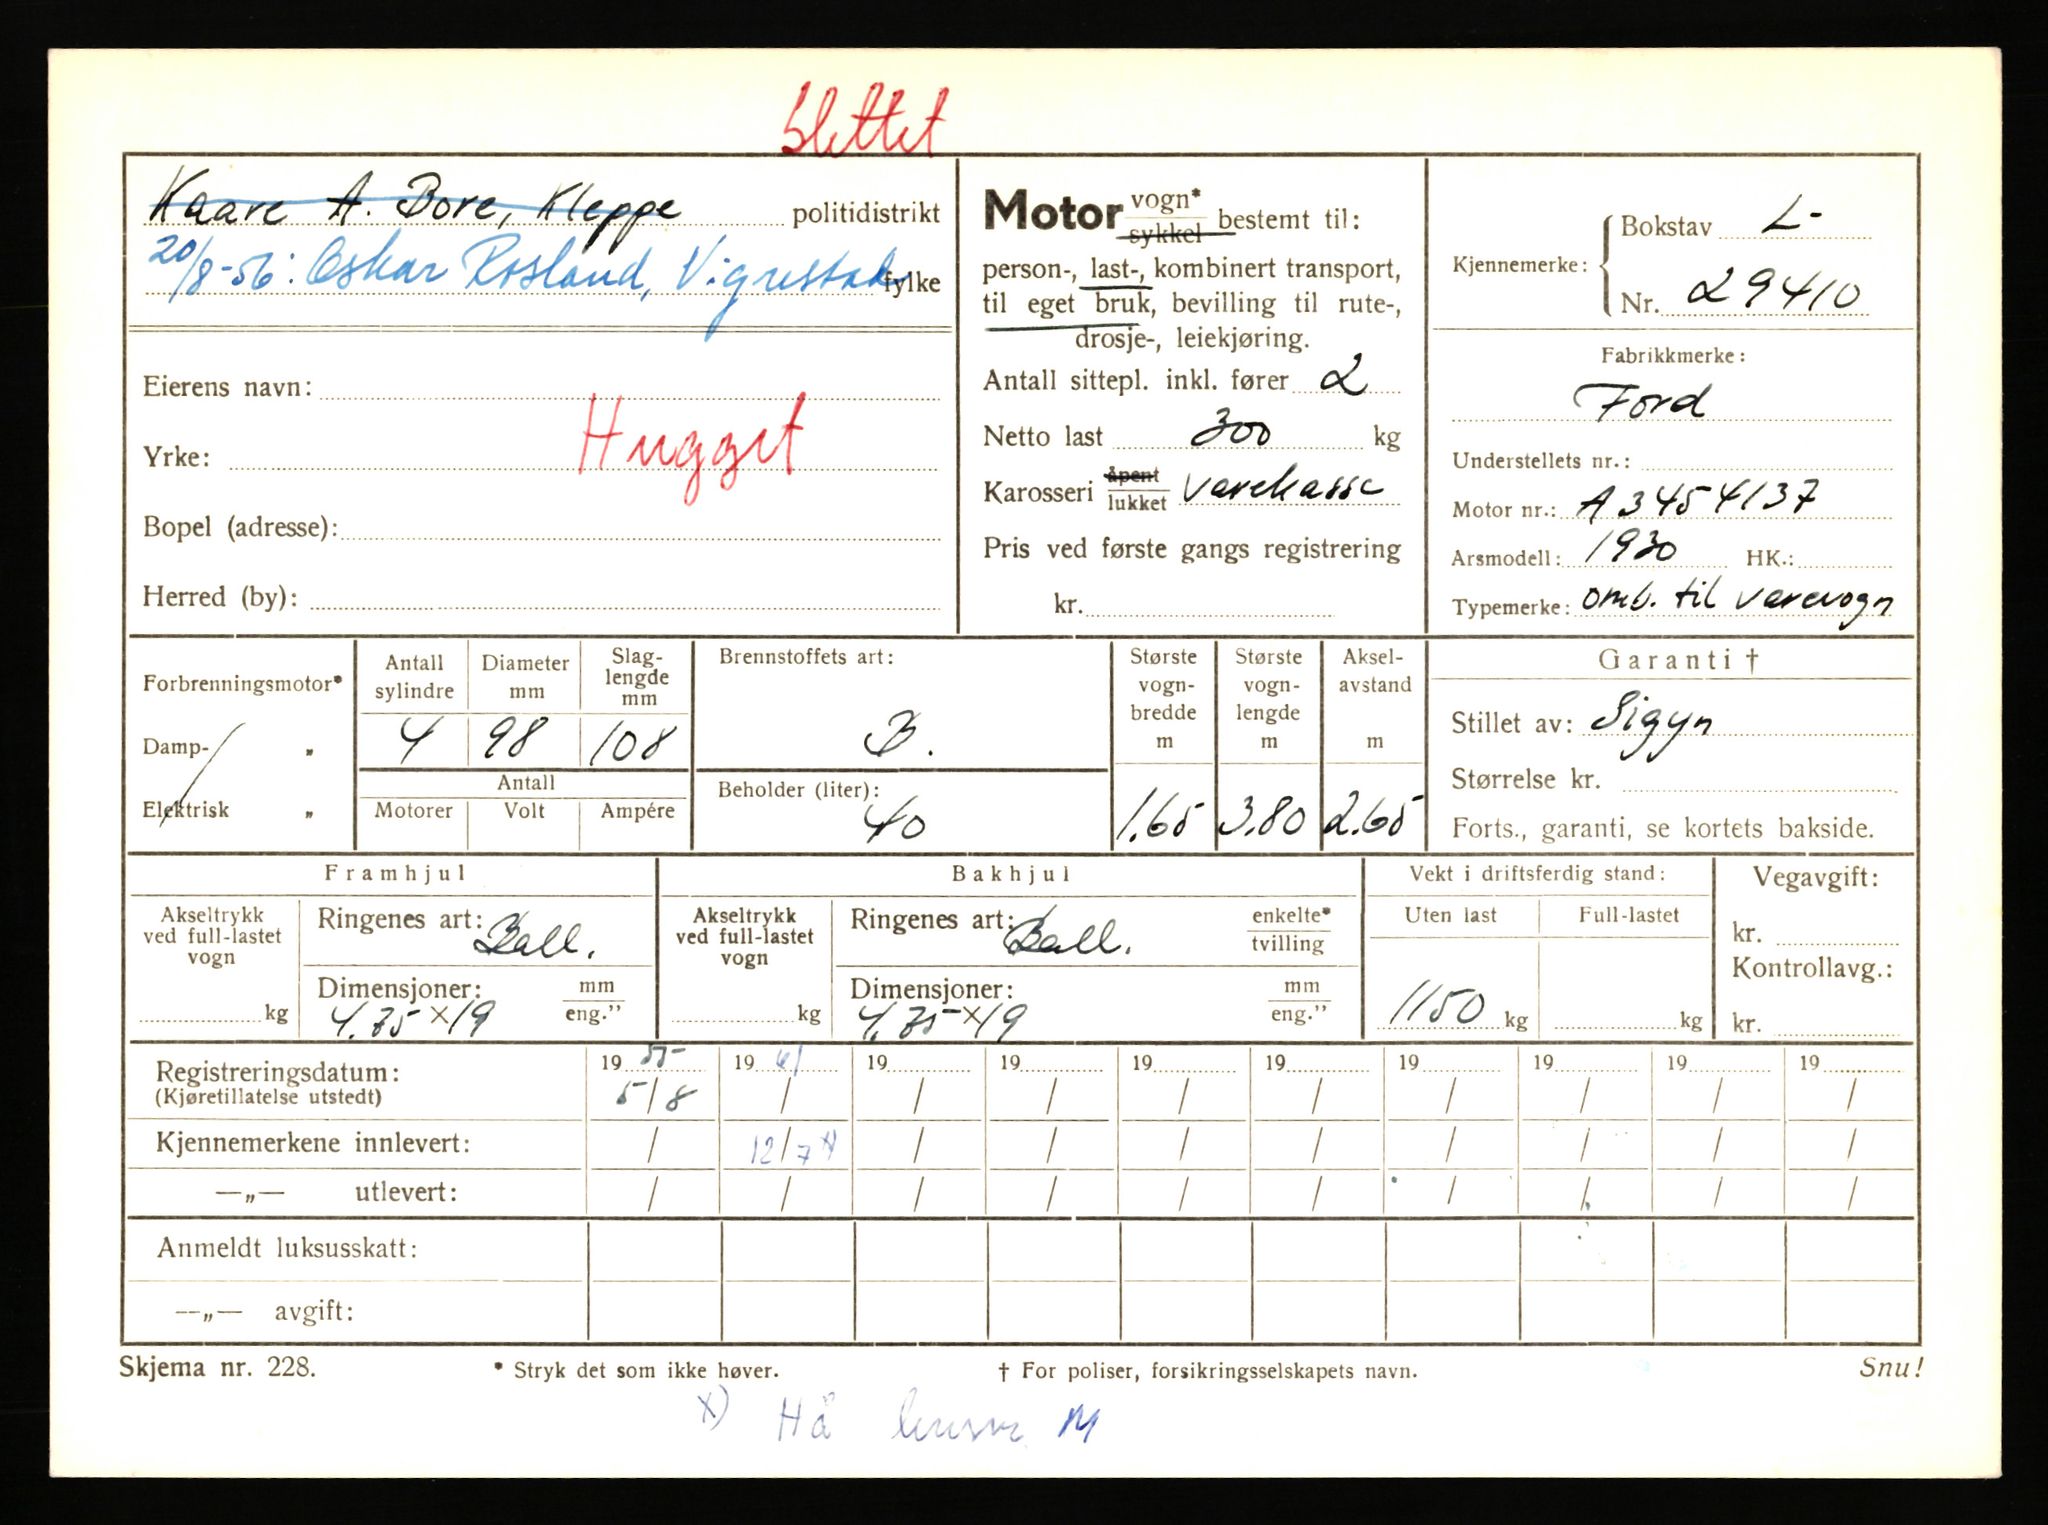 Slettet
Kaare A. Bore, Kleppe politidistrikt
20/8-56: Oskar Rosland, Vigrestad fylke
Eierens navn:
Hugget
Yrke:
Bopel (adresse):
Herred (by):
Motor vogn* sykkel bestemt til:
person-, last-, kombinert transport,
til eget bruk, bevilling til rute-,
drosje-, leiekjøring.
Antall sittepl. inkl. fører 2
Netto last 300 kg
Karosseri åpent lukket varekasse
Pris ved første gangs registrering
kr.
Kjennemerke: Bokstav L-
Nr. 29410
Fabrikkmerke:
Ford
Understellets nr.:
Motor nr.: A3454137
Arsmodell: 1930 HK.:
Typemerke: omb. til varevogn
Forbrenningsmotor*
Damp- „
Elektrisk „
Antall sylindre 4
Diameter mm 98
Slag-
lengde
mm
108
Antall
Motorer Volt Ampére
Brennstoffets art:
B.
Beholder (liter):
40
Største
vogn-
bredde
m
1.65
Største
vogn-
lengde
m
3.80
Aksel-
avstand
m
2.65
Garanti †
Stillet av: Sigyn
Størrelse kr.
Forts., garanti, se kortets bakside.
Framhjul
Akseltrykk
ved full-lastet
vogn
kg
Ringenes art: Ball.
Dimensjoner: mm eng.”
4.75 × 19
Bakhjul
Akseltrykk
ved full-lastet
vogn
kg
Ringenes art: Ball. enkelte* tvilling
Dimensjoner: mm eng.”
4.75 × 19
Vekt i driftsferdig stand:
Uten last Full-lastet
1150 kg kg
Vegavgift:
kr.
Kontrollavg.:
kr.
Registreringsdatum: 19 55 19 61 19 19 19 19 19 19 19 19
(Kjøretillatelse utstedt) 5/8 / / / / / / / / /
Kjennemerkene innlevert: / 12/7 x) / / / / / / / /
—„— utlevert: / / / / / / / / / /
Anmeldt luksusskatt:
—„— avgift:
Skjema nr. 228. * Stryk det som ikke høver. † For poliser, forsikringsselskapets navn. Snu!
x) Hå